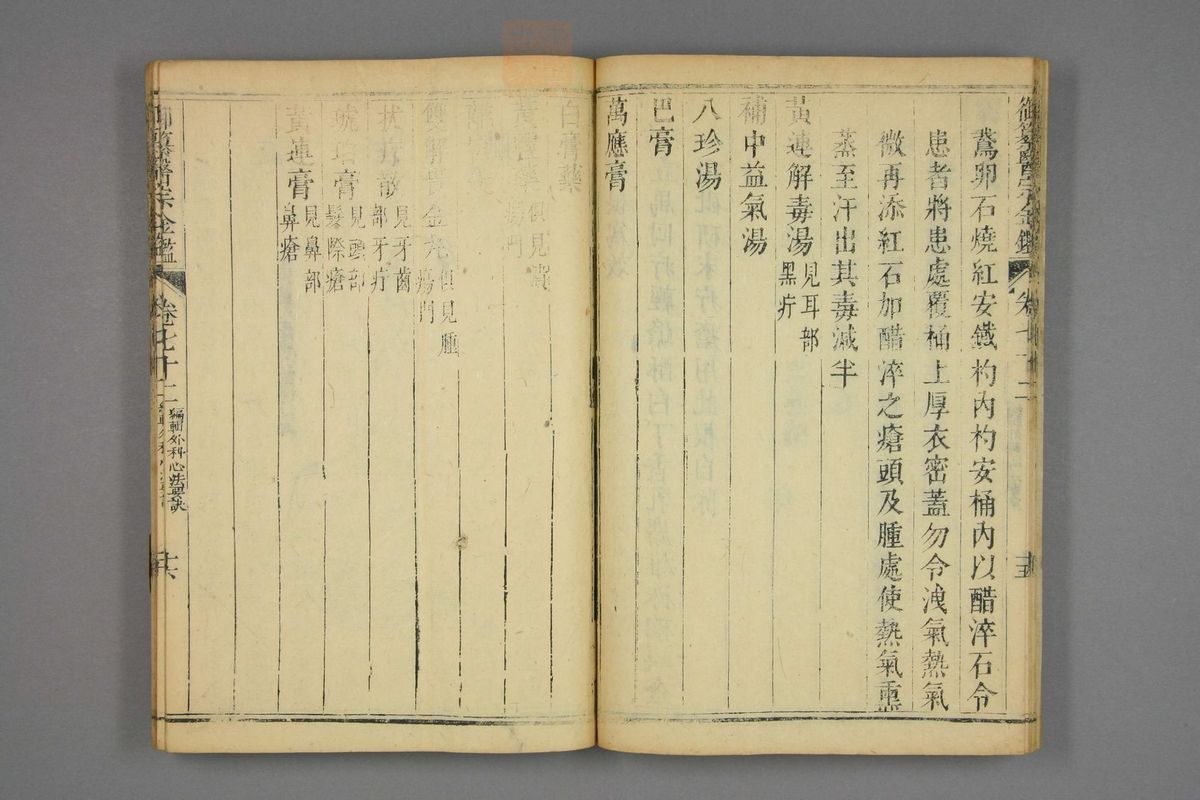 御纂醫宗金鑑 卷七十二 十五
鵞卵石燒紅安鐵杓內杓安桶內以醋淬石令
患者將患處覆桶上厚衣密蓋勿令洩氣熱氣
微再添紅石加醋淬之瘡頭及腫處使熱氣熏
蒸至汗出其毒減半
黃連解毒湯 見耳部
黑疔
補中益氣湯
八珍湯
巴膏
萬應膏
白膏藥 俱見潰
瘍門
蟾酥丸 俱見腫
瘍門
牙疔散 見牙齒
部牙疔
琥珀膏 見頭部
髮際瘡
黃連膏 見鼻部
鼻瘡
御纂醫宗金鑑 卷七十二 編輯外科心法要訣 十六